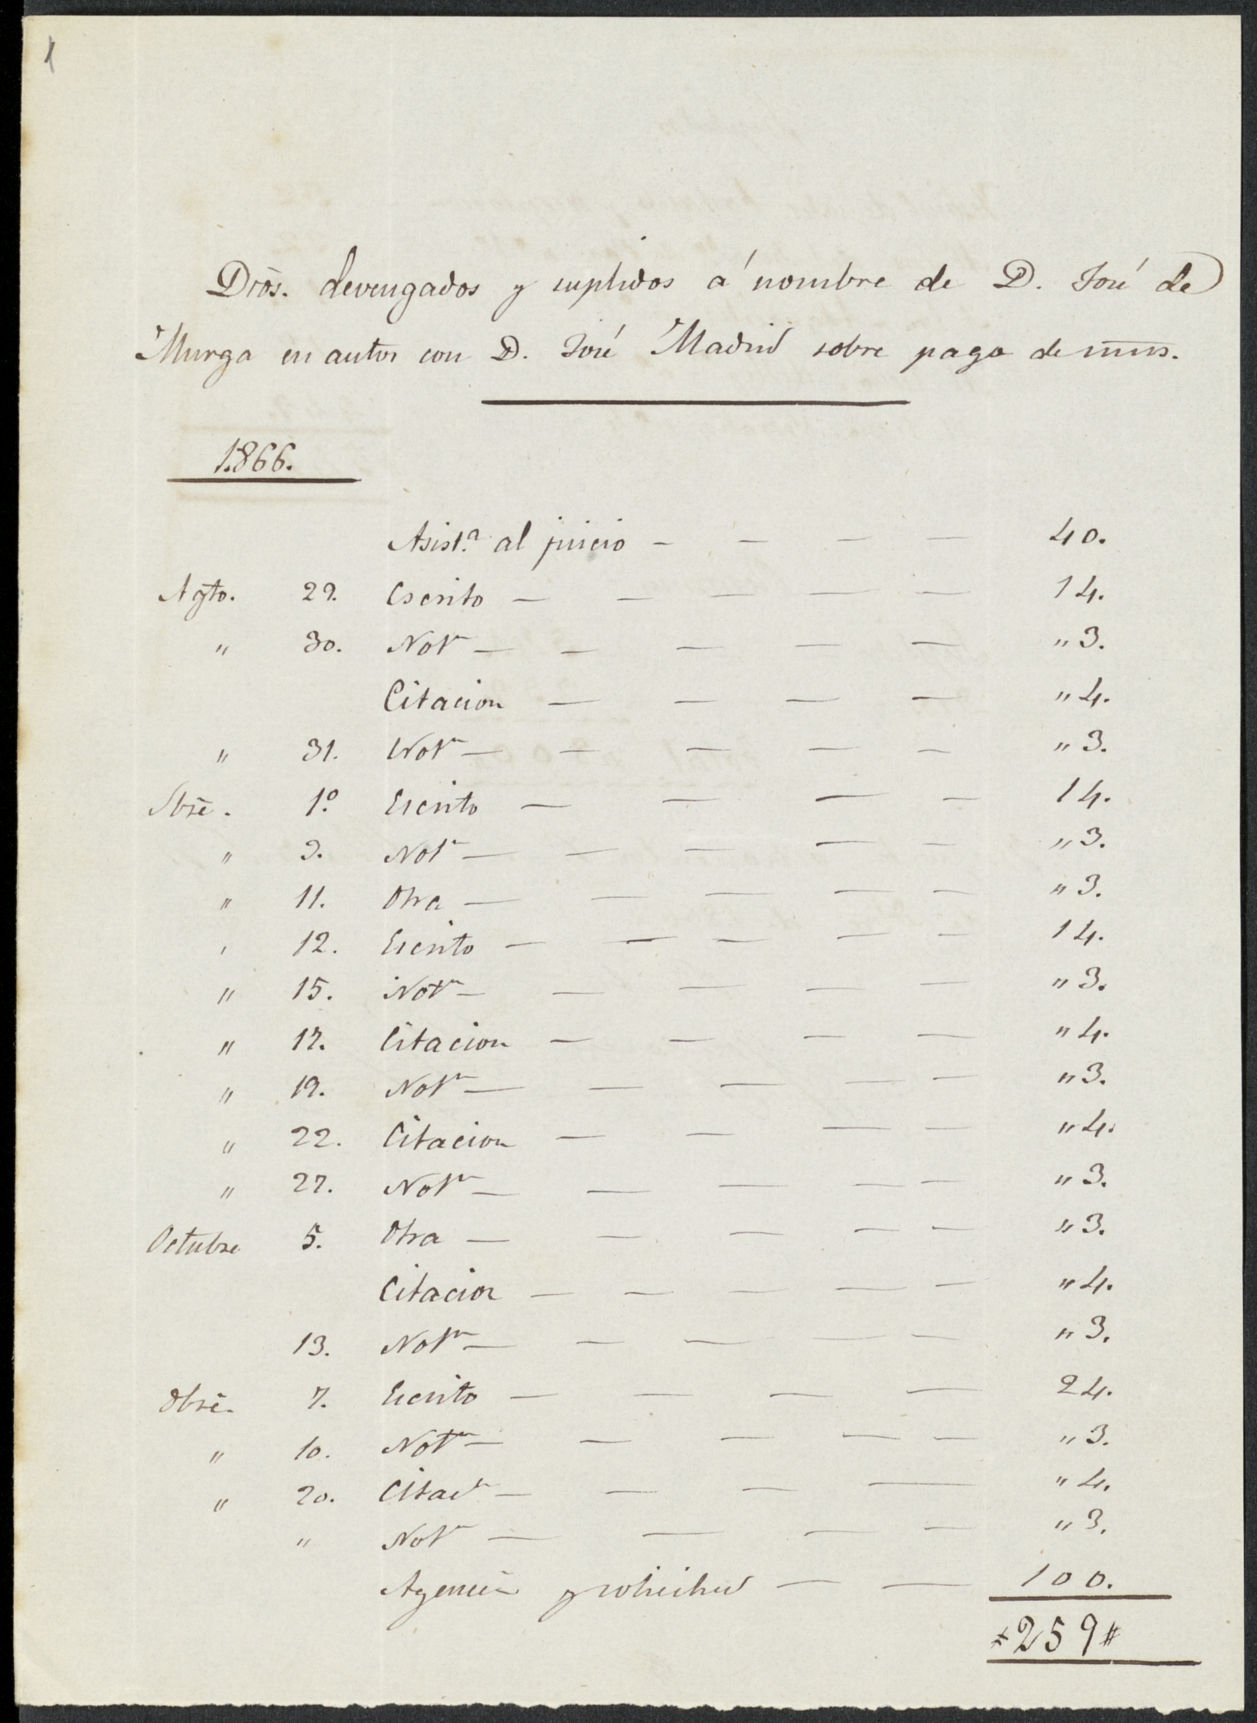 1
Dros. devengados y suplidos á nombre de D. José de
Murga en autos con D. José Madrid sobre pago de mrs.
1866.
Asist.ª al juicio — — — — 40.
Agto. 29. Escrito — — — — — 14.
" 30. Notn — — — — — "3.
Citacion — — — — "4.
" 31. Notn — — — — — "3.
Sbre. 1º Escrito — — — — 14.
" 3. Notn — — — — — "3.
" 11. Otra — — — — — "3.
" 12. Escrito — — — — — 14.
" 15. Notn — — — — — "3.
" 17. Citacion — — — — "4.
" 19. Notn — — — — — "3.
" 22. Citacion — — — — "4.
" 27. Notn — — — — — "3.
Octubre 5. Otra — — — — — "3.
Citacion — — — — — "4.
13. Notn — — — — — "3.
Obre. 7. Escrito — — — — 24.
" 10. Notn — — — — — "3.
" 20. Citacn — — — — "4.
" Notn — — — — "3.
Agencia y solicitud — — 100.
259